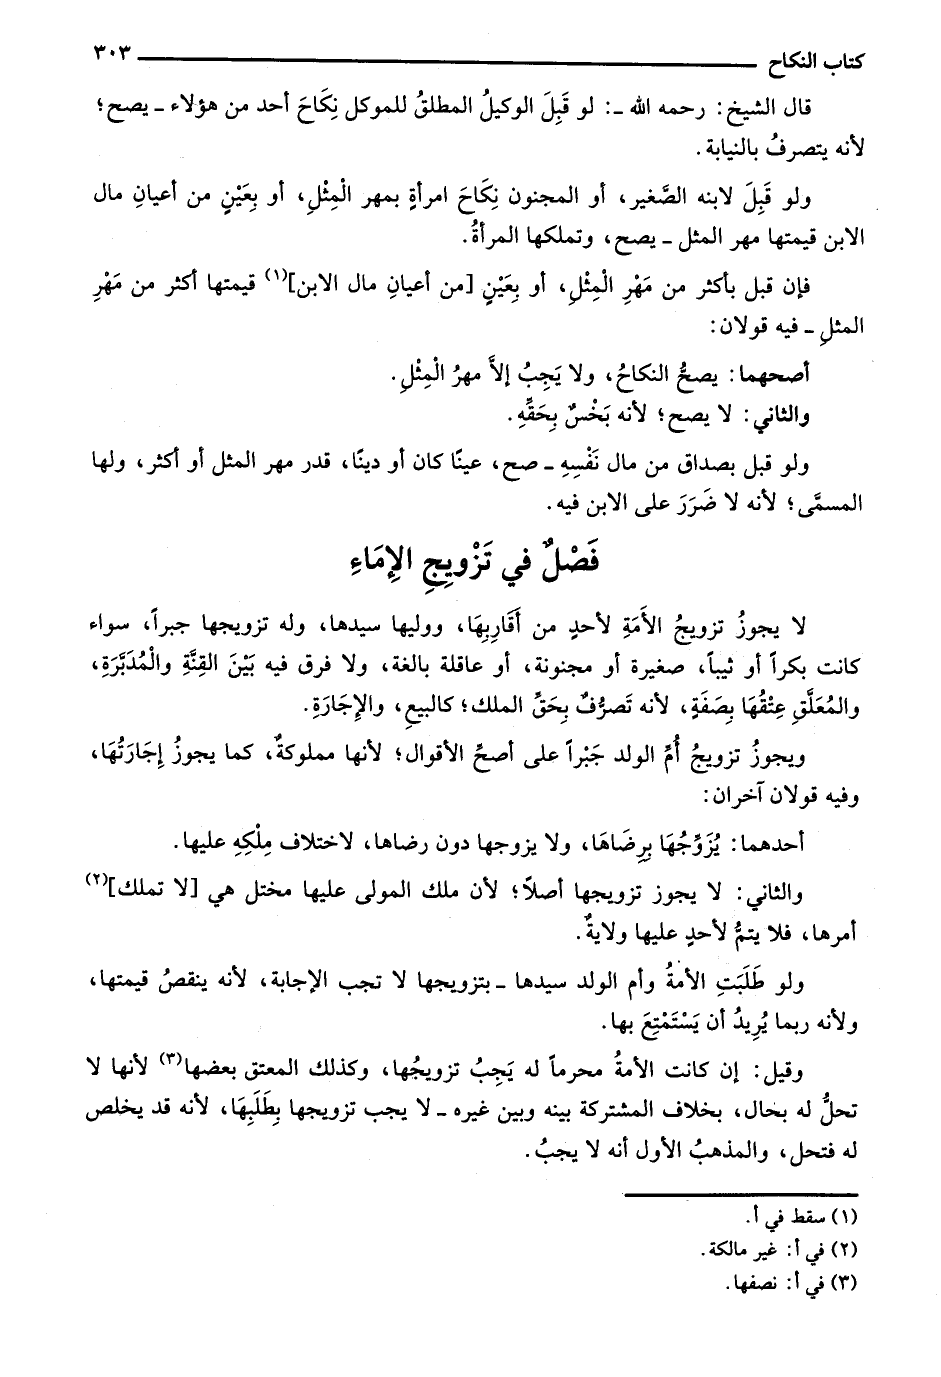 كتاب النكاح ٣٠٣
قال الشيخ: رحمه الله ـ: لو قَبِلَ الوكيلُ المطلقُ للموكل نِكَاحَ أحد من هؤلاء ـ يصح؛
لأنه يتصرفُ بالنيابة.
ولو قَبِلَ لابنه الصَّغير، أو المجنون نِكَاحَ امرأةٍ بمهر الْمِثْلِ، أو بِعَيْنٍ من أعيانِ مال
الابن قيمتها مهر المثل ـ يصح، وتملكها المرأةُ.
فإن قبل بأكثر من مَهْرِ الْمِثْلِ، أو بِعَيْنٍ [من أعيانِ مال الابن](١) قيمتها أكثر من مَهْرِ
المثلِ ـ فيه قولان:
أصحهما: يصحُّ النكاحُ، ولا يَجِبُ إلاَّ مهرُ الْمِثْلِ.
والثاني: لا يصح؛ لأنه بَخْسٌ بِحَقِّهِ.
ولو قبل بصداق من مال نَفْسِهِ ـ صح، عينًا كان أو دينًا، قدر مهر المثل أو أكثر، ولها
المسمَّى؛ لأنه لا ضَرَرَ على الابن فيه.
فَصْلٌ في تَزْوِيجِ الإِمَاءِ
لا يجوزُ تزويجُ الأَمَةِ لأحدٍ من أَقَارِبِهَا، ووليها سيدها، وله تزويجها جبراً، سواء
كانت بكراً أو ثيباً، صغيرة أو مجنونة، أو عاقلة بالغة، ولا فرق فيه بَيْنَ القِنَّةِ والْمُدَبَّرَةِ،
والمُعَلَّقِ عِتْقُهَا بِصَفَةٍ، لأنه تَصرُّفٌ بِحَقِّ الملك؛ كالبيعِ، والإِجَارَةِ.
ويجوزُ تزويجُ أُمِّ الولد جَبْراً على أصحِّ الأقوال؛ لأنها مملوكةٌ، كما يجوزُ إِجَارَتُهَا،
وفيه قولان آخران:
أحدهما: يُزَوِّجُهَا بِرِضَاهَا، ولا يزوجها دون رضاها، لاختلاف مِلْكِهِ عليها.
والثاني: لا يجوز تزويجها أصلاً؛ لأن ملك المولى عليها مختل هي [لا تملك](٢)
أمرها، فلا يتمُّ لأحدٍ عليها ولايةٌ.
ولو طَلَبَتِ الأمةُ وأم الولد سيدها ـ بتزويجها لا تجب الإجابة، لأنه ينقصُ قيمتها،
ولأنه ربما يُرِيدُ أن يَسْتَمْتِعَ بها.
وقيل: إن كانت الأمةُ محرماً له يَجِبُ تزويجُها، وكذلك المعتق بعضها(٣) لأنها لا
تحلُّ له بحال، بخلاف المشتركة بينه وبين غيره ـ لا يجب تزويجها بِطَلَبِهَا، لأنه قد يخلص
له فتحل، والمذهبُ الأول أنه لا يجبُ.
(١) سقط في أ.
(٢) في أ: غير مالكة.
(٣) في أ: نصفها.